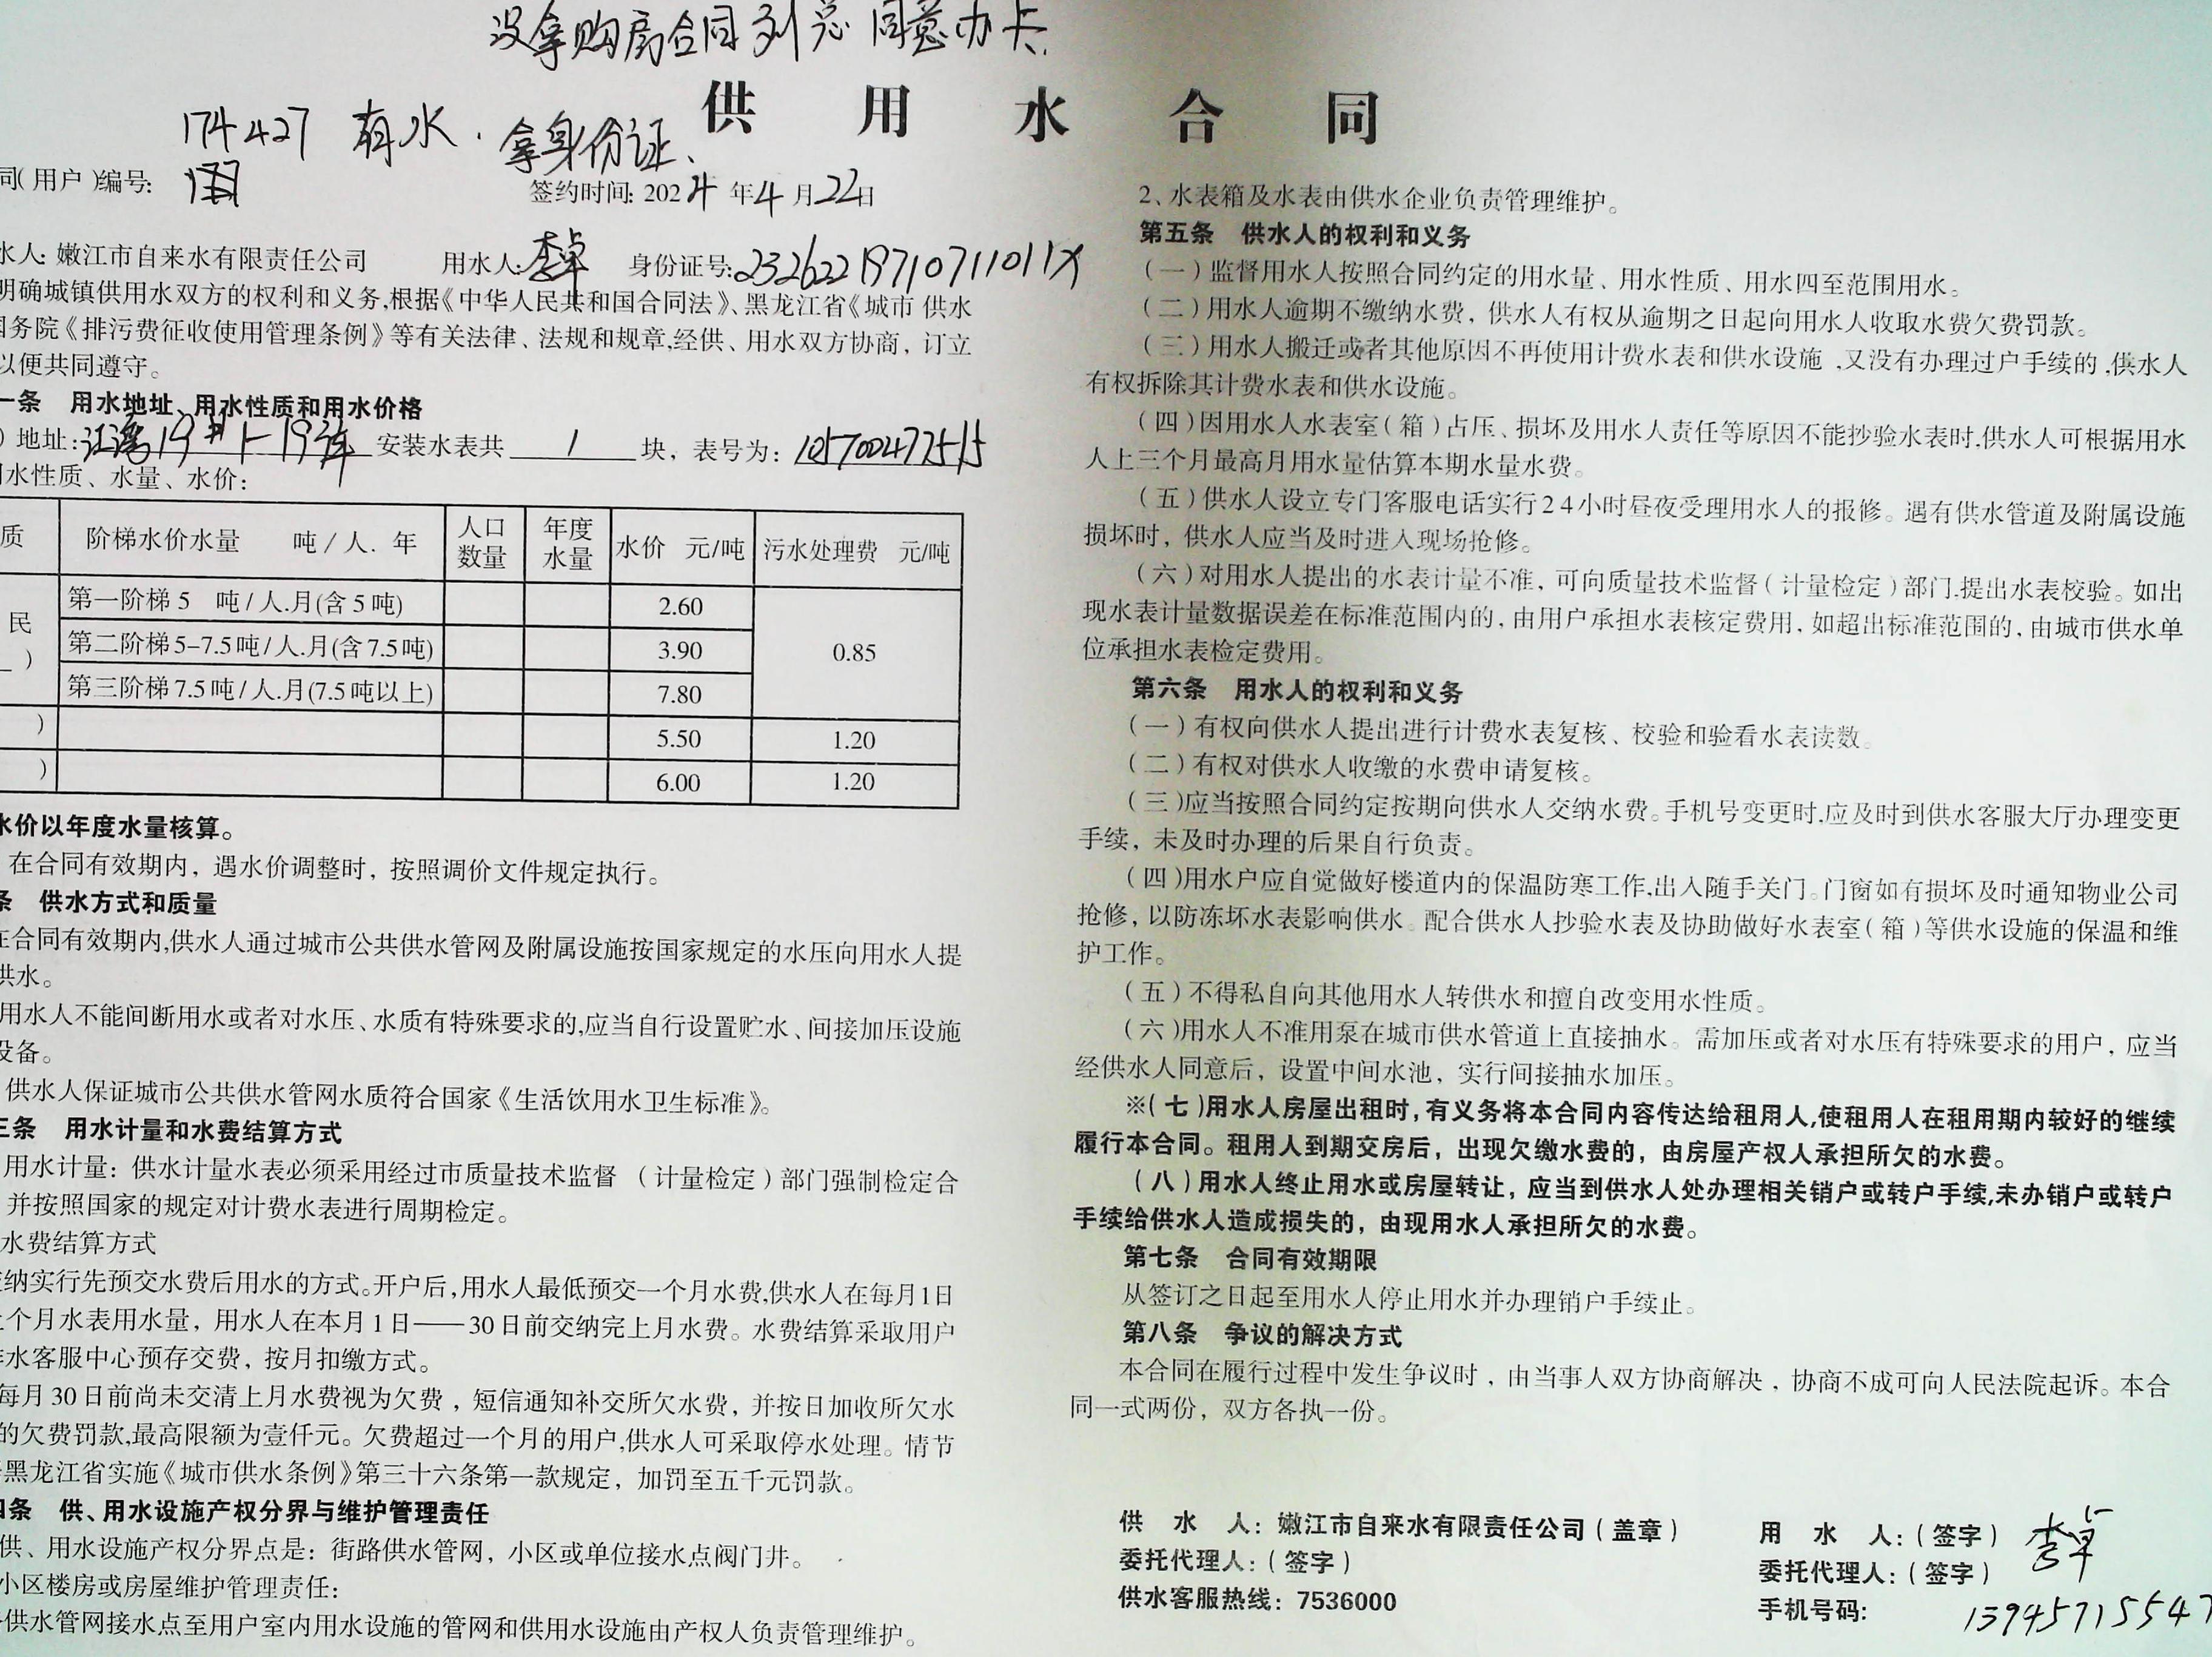 没拿购房合同刘总同意办卡.
供 用 水 合 同
174427 有水.拿身份证、
同(用户)编号:
签约时间: 2024 年 4 月 22 日
水人: 嫩江市自来水有限责任公司 用水人: 李卓 身份证号: 23262219710711011X
明确城镇供用水双方的权利和义务,根据《中华人民共和国合同法》、黑龙江省《城市 供水
国务院《排污费征收使用管理条例》等有关法律、法规和规章,经供、用水双方协商, 订立
以便共同遵守。
一条 用水地址、用水性质和用水价格
) 地址: 江湾19#1-19 安装水表共 1 块, 表号为: 105700477515
用水性质、水量、水价:
质 阶梯水价水量 吨/人. 年 人口数量 年度水量 水价 元/吨 污水处理费 元/吨
民 第一阶梯 5 吨/人.月(含 5 吨) 2.60 0.85
第二阶梯 5-7.5 吨/人.月(含 7.5 吨) 3.90
) 第三阶梯 7.5 吨/人.月(7.5 吨以上) 7.80
) 5.50 1.20
) 6.00 1.20
水价以年度水量核算。
在合同有效期内, 遇水价调整时, 按照调价文件规定执行。
条 供水方式和质量
在合同有效期内,供水人通过城市公共供水管网及附属设施按国家规定的水压向用水人提
供水。
用水人不能间断用水或者对水压、水质有特殊要求的,应当自行设置贮水、间接加压设施
设备。
供水人保证城市公共供水管网水质符合国家《生活饮用水卫生标准》。
三条 用水计量和水费结算方式
用水计量: 供水计量水表必须采用经过市质量技术监督 (计量检定)部门强制检定合
并按照国家的规定对计费水表进行周期检定。
水费结算方式
纳实行先预交水费后用水的方式。开户后,用水人最低预交一个月水费,供水人在每月1日
上个月水表用水量, 用水人在本月 1 日——30 日前交纳完上月水费。水费结算采取用户
水客服中心预存交费, 按月扣缴方式。
每月 30 日前尚未交清上月水费视为欠费, 短信通知补交所欠水费, 并按日加收所欠水
的欠费罚款,最高限额为壹仟元。欠费超过一个月的用户,供水人可采取停水处理。情节
黑龙江省实施《城市供水条例》第三十六条第一款规定, 加罚至五千元罚款。
四条 供、用水设施产权分界与维护管理责任
供、用水设施产权分界点是: 街路供水管网, 小区或单位接水点阀门井。
小区楼房或房屋维护管理责任:
供水管网接水点至用户室内用水设施的管网和供用水设施由产权人负责管理维护。
2、水表箱及水表由供水企业负责管理维护。
第五条 供水人的权利和义务
(一)监督用水人按照合同约定的用水量、用水性质、用水四至范围用水。
(二)用水人逾期不缴纳水费, 供水人有权从逾期之日起向用水人收取水费欠费罚款。
(三)用水人搬迁或者其他原因不再使用计费水表和供水设施,又没有办理过户手续的,供水人
有权拆除其计费水表和供水设施。
(四)因用水人水表室(箱)占压、损坏及用水人责任等原因不能抄验水表时,供水人可根据用水
人上三个月最高月用水量估算本期水量水费。
(五)供水人设立专门客服电话实行24小时昼夜受理用水人的报修。遇有供水管道及附属设施
损坏时, 供水人应当及时进入现场抢修。
(六)对用水人提出的水表计量不准, 可向质量技术监督(计量检定)部门.提出水表校验。如出
现水表计量数据误差在标准范围内的, 由用户承担水表核定费用, 如超出标准范围的, 由城市供水单
位承担水表检定费用。
第六条 用水人的权利和义务
(一)有权向供水人提出进行计费水表复核、校验和验看水表读数。
(二)有权对供水人收缴的水费申请复核。
(三)应当按照合同约定按期向供水人交纳水费。手机号变更时,应及时到供水客服大厅办理变更
手续, 未及时办理的后果自行负责。
(四)用水户应自觉做好楼道内的保温防寒工作,出入随手关门。门窗如有损坏及时通知物业公司
抢修, 以防冻坏水表影响供水。配合供水人抄验水表及协助做好水表室(箱)等供水设施的保温和维
护工作。
(五)不得私自向其他用水人转供水和擅自改变用水性质。
(六)用水人不准用泵在城市供水管道上直接抽水。需加压或者对水压有特殊要求的用户, 应当
经供水人同意后, 设置中间水池, 实行间接抽水加压。
※(七)用水人房屋出租时,有义务将本合同内容传达给租用人,使租用人在租用期内较好的继续
履行本合同。租用人到期交房后, 出现欠缴水费的, 由房屋产权人承担所欠的水费。
(八)用水人终止用水或房屋转让, 应当到供水人处办理相关销户或转户手续,未办销户或转户
手续给供水人造成损失的, 由现用水人承担所欠的水费。
第七条 合同有效期限
从签订之日起至用水人停止用水并办理销户手续止。
第八条 争议的解决方式
本合同在履行过程中发生争议时, 由当事人双方协商解决, 协商不成可向人民法院起诉。本合
同一式两份, 双方各执一份。
供 水 人: 嫩江市自来水有限责任公司(盖章)
委托代理人:(签字)
供水客服热线: 7536000
用 水 人:(签字) 李卓
委托代理人:(签字)
手机号码: 13945715547